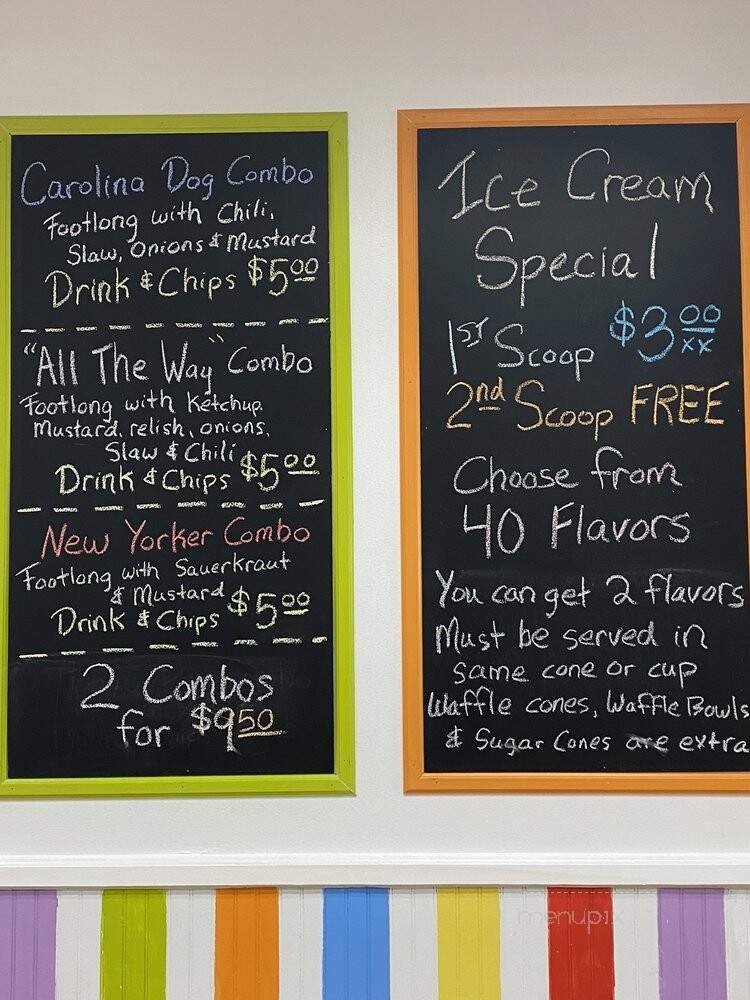 Carolina Dog Combo
Footlong with Chili,
Slaw, Onions & Mustard
Drink & Chips $5.00
"All The Way" Combo
Footlong with Ketchup,
Mustard, relish, onions,
Slaw & Chili
Drink & Chips $5.00
New Yorker Combo
Footlong with Sauerkraut
& Mustard
Drink & Chips $5.00
2 Combos
for $9.50
Ice Cream
Special
1st Scoop $3 00/xx
2nd Scoop FREE
Choose from
40 Flavors
You can get 2 flavors
Must be served in
same cone or cup
Waffle cones, Waffle Bowls
& Sugar Cones are extra
menupix